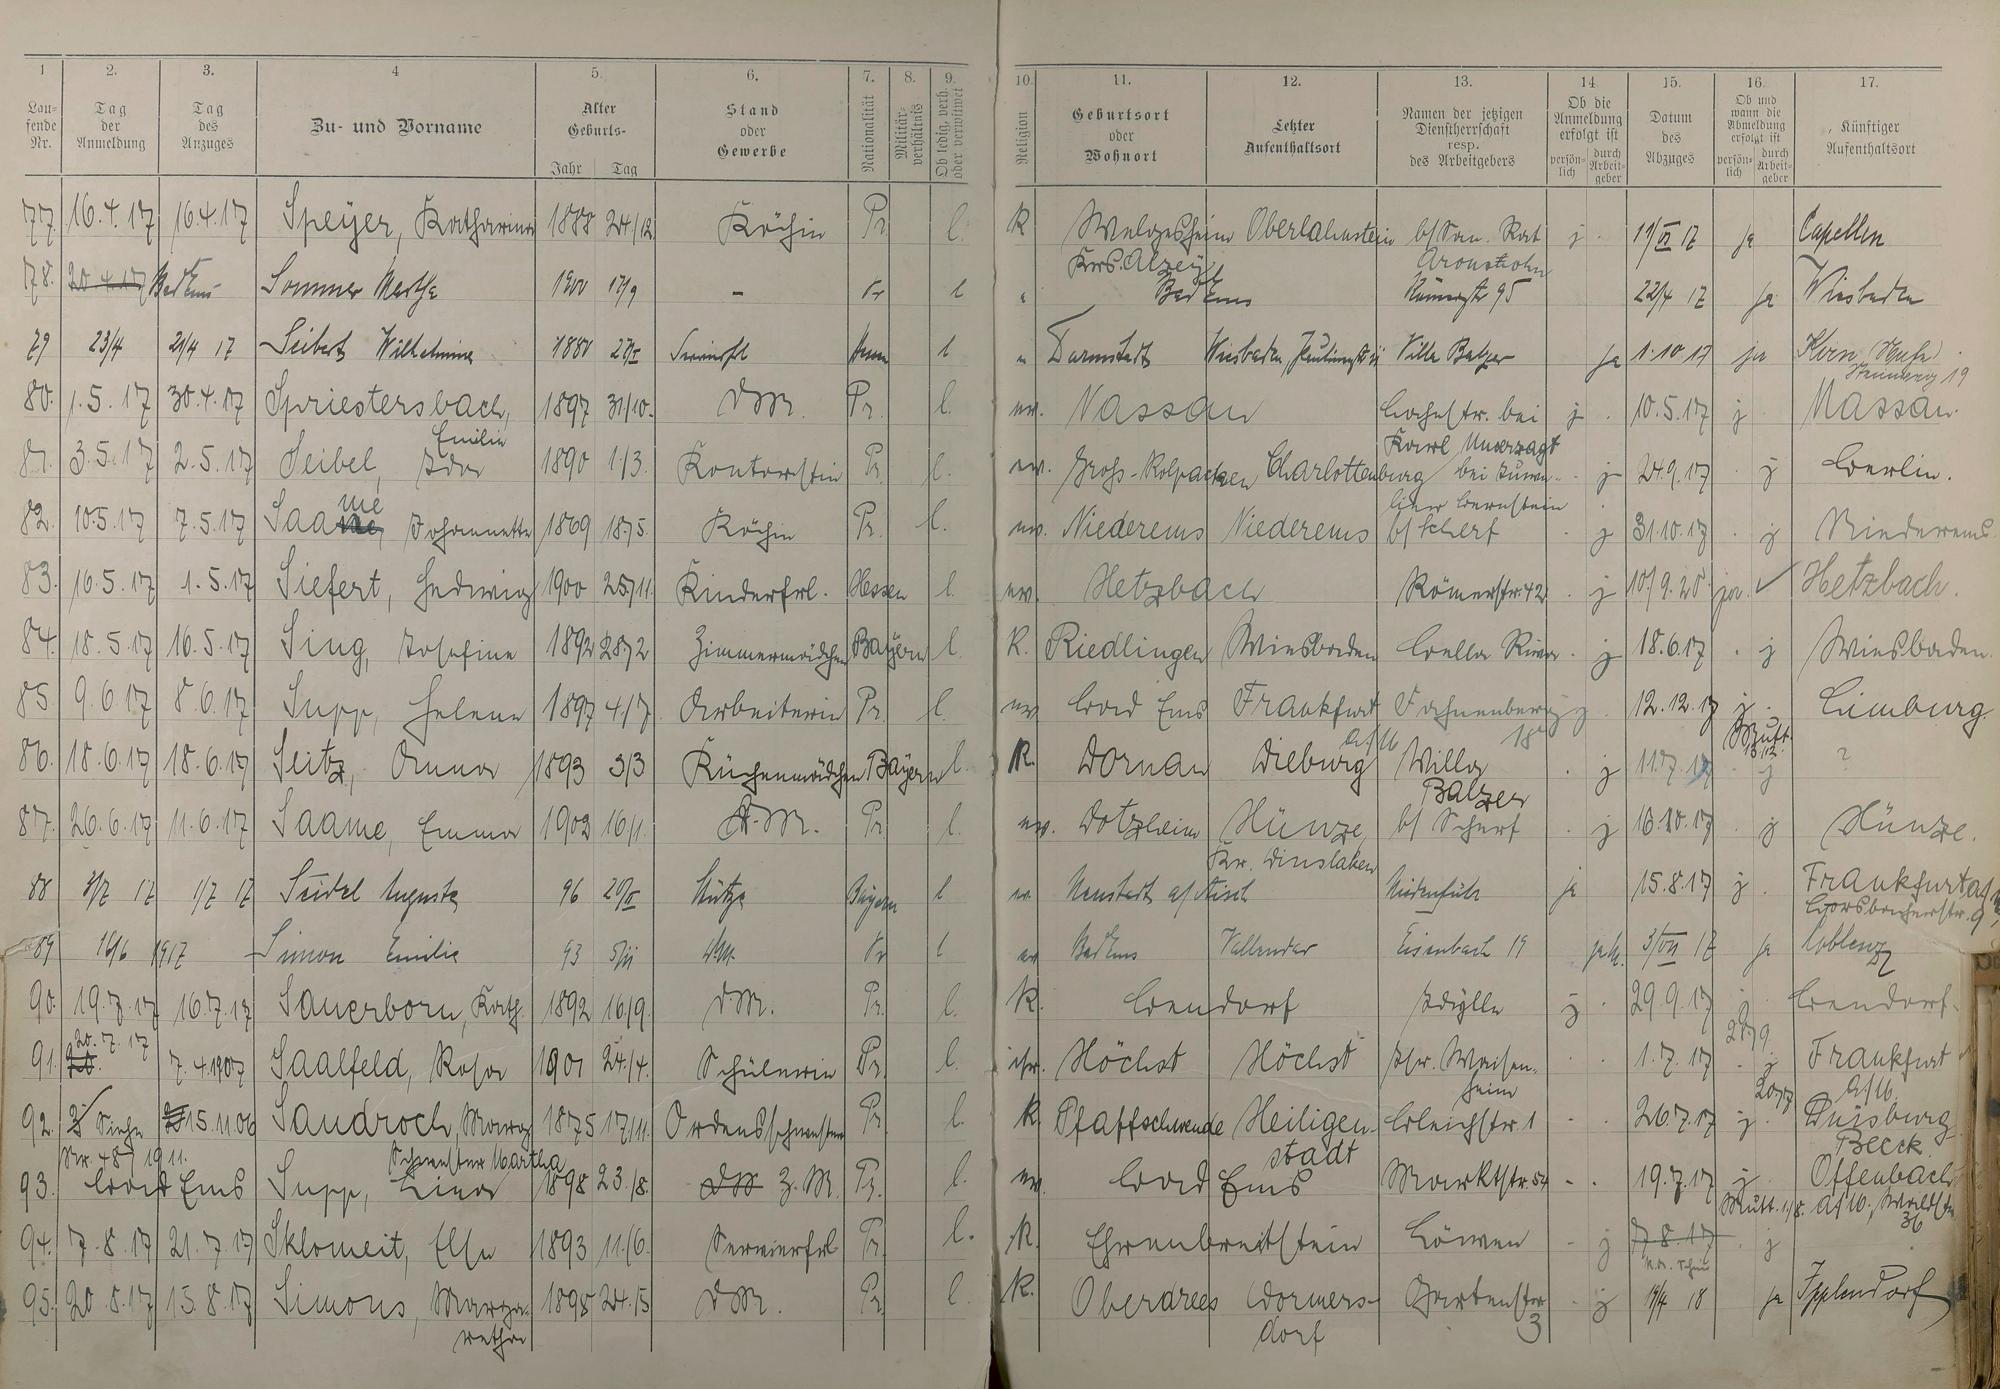 1 2. 3. 4 5. 6. 7. 8. 9. 10. 11. 12. 13. 14 15. 16. 17.
Lau-fende Nr. Tag der Anmeldung Tag des Anzuges Zu- und Vorname Alter Geburts- Jahr Tag Stand oder Gewerbe Nationalität Militär-verhältnis Ob ledig, verh. oder verwitwet Religion Geburtsort oder Wohnort Letzter Aufenthaltsort Namen der jetzigen Dienstherrschaft resp. des Arbeitgebers Ob die Anmeldung erfolgt ist persön-lich durch Arbeit-geber Datum des Abzuges Ob und wann die Abmeldung erfolgt ist persön-lich durch Arbeit-geber Künftiger Aufenthaltsort
77. 16.4.17 16.4.17 Speyer, Katharina 1888 24/12. Köchin Pr. l. K Oberlahnstein b/ San. Rat j. 19/VI 17 ja Capellen
Krs. Alzey Aronsohn
78. 20.4.17 Bad Ems Sommer Martha 1900 17/9 - Pr l Bad Ems Römerstr 95 22/4 17 ja Wiesbaden
79 23/4 21/4 17 Seibert Wilhelmine l Darmstadt Wiesbaden, Villa Balzer ja 1.10 17 ja Kirn
19
80. 1.5.17 30.4.17 Spriestersbach, 1897 31/10. DM. Pr. l. ev. Nassau bei j. 10.5.17 j Nassau.
Emilie Karl Unverzagt
81. 3.5.17 2.5.17 Seibel, Ida 1890 1/3. Kontoristin Pr. l. ev. Charlottenburg bei j 24.9.17 j Berlin.
Bernstein
82. 10.5.17 7.5.17 Saame, Johannette 1869 18/5. Köchin Pr. l. ev. Niederems Niederems b/ Scherf j 31.10.17 j Niederems
83. 16.5.17 1.5.17 Siefert, Hedwig 1900 25/11. Kinderfrl. Hessen l. ev. Hetzbach Römerstr. 42 j ja Hetzbach.
84. 18.5.17 16.5.17 Sing, Josefine 1892 28/2 Zimmermädchen Bayern l. K. Riedlingen Wiesbaden Bella Riva j 18.6.17 j Wiesbaden.
85. 9.6.17 8.6.17 Supp, Helene 1897 4/7. Arbeiterin Pr. l. ev. Bad Ems Frankfurt Fachnenberg j. 12.12.17 j. Limburg
a/M 18 Mutt. 13.12.
86. 18.6.17 18.6.17 Seitz, Anna 1893 3/3 Küchenmädchen Bayern l. K. Dornau Dieburg Villa j 11.7.17 j ?
Balzer
87. 26.6.17 11.6.17 Saame, Emma 1902 16/1. DM. Pr. l. ev. Dotzheim Hünxe, b/ Scherf j 16.10.17 j Hünxe.
Kr. Dinslaken
88 3/7 17 1/7 17 Seidel Auguste 96 Stütze Bayern l ev. Neustadt a/Aisch ja 15.8.17 j. Frankfurt a/M
9
89 16/6 1917 Simon Emilie 93 Pr l ev Bad Ems Vallendar Eisenbach 19 3/VII 17 ja Koblenz
90. 19.7.17 16.7.17 Sauerborn, Kath. 1892 16/9. DM. Pr. l. K. Bendorf Idylle j. 29.9.17 j. Bendorf.
20.7.17 28/9.
91. 7.4.1907 Saalfeld, Rosa 1901 24/4. Schülerin Pr. l. isr. Höchst Höchst Isr. Waisen- 1.7.17 j Frankfurt
heim 20/7 a/M.
92. Siehe 15.11.06 Sandroch, Marg. 1875 17/11. Ordensschwester Pr. l. K. Pfaffschwende Heiligen- Bleichstr. 1 26.7.17 j. Duisburg
Nr. 487 1911. Schwester Martha stadt Beeck.
93. Bad Ems Supp, Lina 1898 23./8. DM Z.M. Pr. l. ev. Bad Ems Marktstr. 54 19.7.17 j Offenbach
Mutt. 1./8. a/M., Waldstr.
36
94. 7.8.17 21.7.17 Sklomeit, Else 1893 11./6. Servierfrl Pr. l. K. Ehrenbreitstein Löwen j 7.8.17 j
95. 20.8.17 15.8.17 Simons, Marga- 1898 24./5 DM. Pr. l. K. Oberdrees Wormers- Gartenstr j 11/4 18 ja Ipplendorf
rethe dorf 3